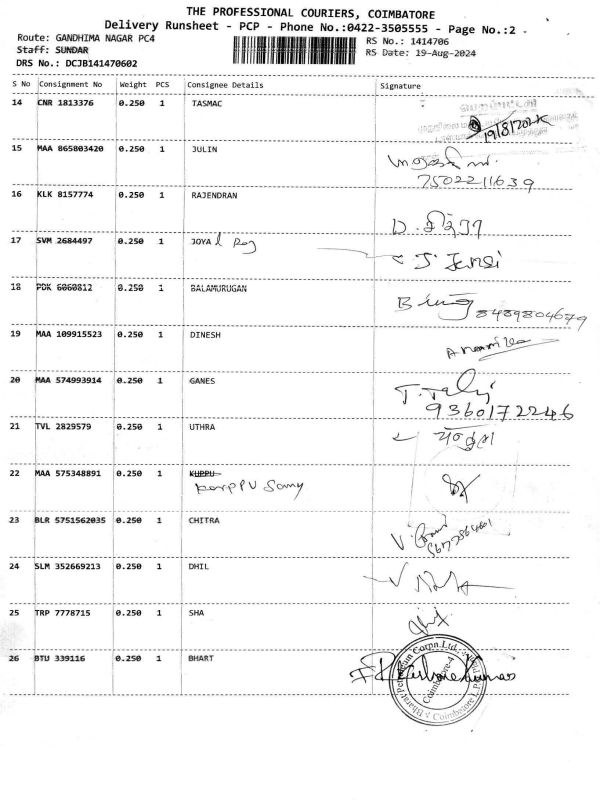 THE PROFESSIONAL COURIERS, COIMBATORE
Delivery Runsheet - PCP - Phone No.:0422-3505555 - Page No.:2 -
Route: GANDHIMA NAGAR PC4
RS No.: 1414706
Staff: SUNDAR
RS Date: 19-Aug-2024
DRS No.: DCJB141470602
S No Consignment No Weight PCS Consignee Details Signature
14 CNR 1813376 0.250 1 TASMAC
19/8/2024
15 MAA 865803420 0.250 1 JULIN
7502211639
16 KLK 8157774 0.250 1 RAJENDRAN
D.
17 SVM 2684497 0.250 1 JOYAl Raj
J. Jensi
18 PDK 6060812 0.250 1 BALAMURUGAN
8489804679
19 MAA 109915523 0.250 1 DINESH
20 MAA 574993914 0.250 1 GANES
9360172246
21 TVL 2829579 0.250 1 UTHRA
22 MAA 575348891 0.250 1 KUPPU
karppu Samy
23 BLR 5751562035 0.250 1 CHITRA
24 SLM 352669213 0.250 1 DHIL
25 TRP 7778715 0.250 1 SHA
26 BTU 339116 0.250 1 BHART
Bharat Petroleum Corpn.Ltd.,
Coimbatore-4